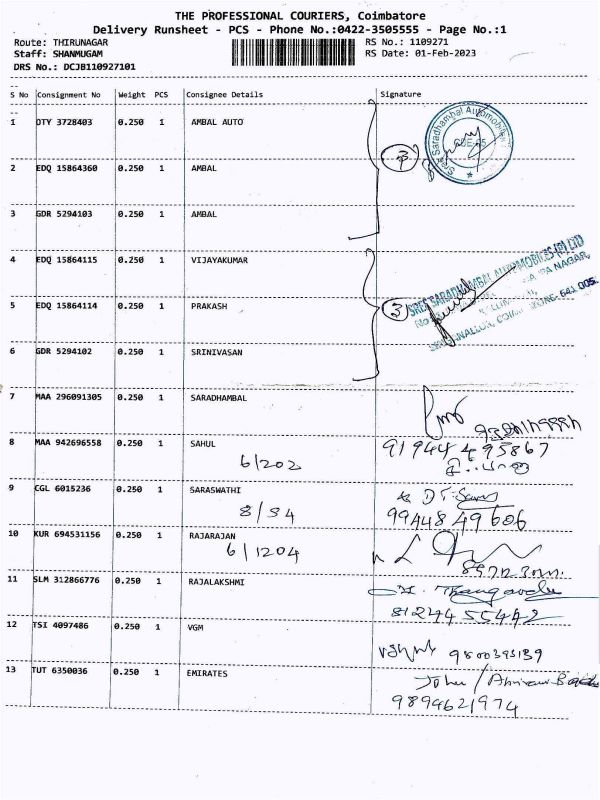 THE PROFESSIONAL COURIERS, Coimbatore
Delivery Runsheet - PCS - Phone No.:0422-3505555 - Page No.:1
Route: THIRUNAGAR RS No.: 1109271
Staff: SHANMUGAM RS Date: 01-Feb-2023
DRS No.: DCJB110927101
S No Consignment No Weight PCS Consignee Details Signature
1 OTY 3728403 0.250 1 AMBAL AUTO
Sree Saradhambal Automobiles
2 EDQ 15864360 0.250 1 AMBAL
3 GDR 5294103 0.250 1 AMBAL
4 EDQ 15864115 0.250 1 VIJAYAKUMAR
SREE SARADHAMBAL AUTOMOBILES (P) LTD
5 EDQ 15864114 0.250 1 PRAKASH 3
6 GDR 5294102 0.250 1 SRINIVASAN
7 MAA 296091305 0.250 1 SARADHAMBAL
8 MAA 942696558 0.250 1 SAHUL 91944 495867
6/202
9 CGL 6015236 0.250 1 SARASWATHI
8/S4 9944849606
10 KUR 694531156 0.250 1 RAJARAJAN
6/1204
11 SLM 312866776 0.250 1 RAJALAKSHMI Thangavelu
8124455442
12 TSI 4097486 0.250 1 VGM
9800393139
13 TUT 6350036 0.250 1 EMIRATES John /
9894621974